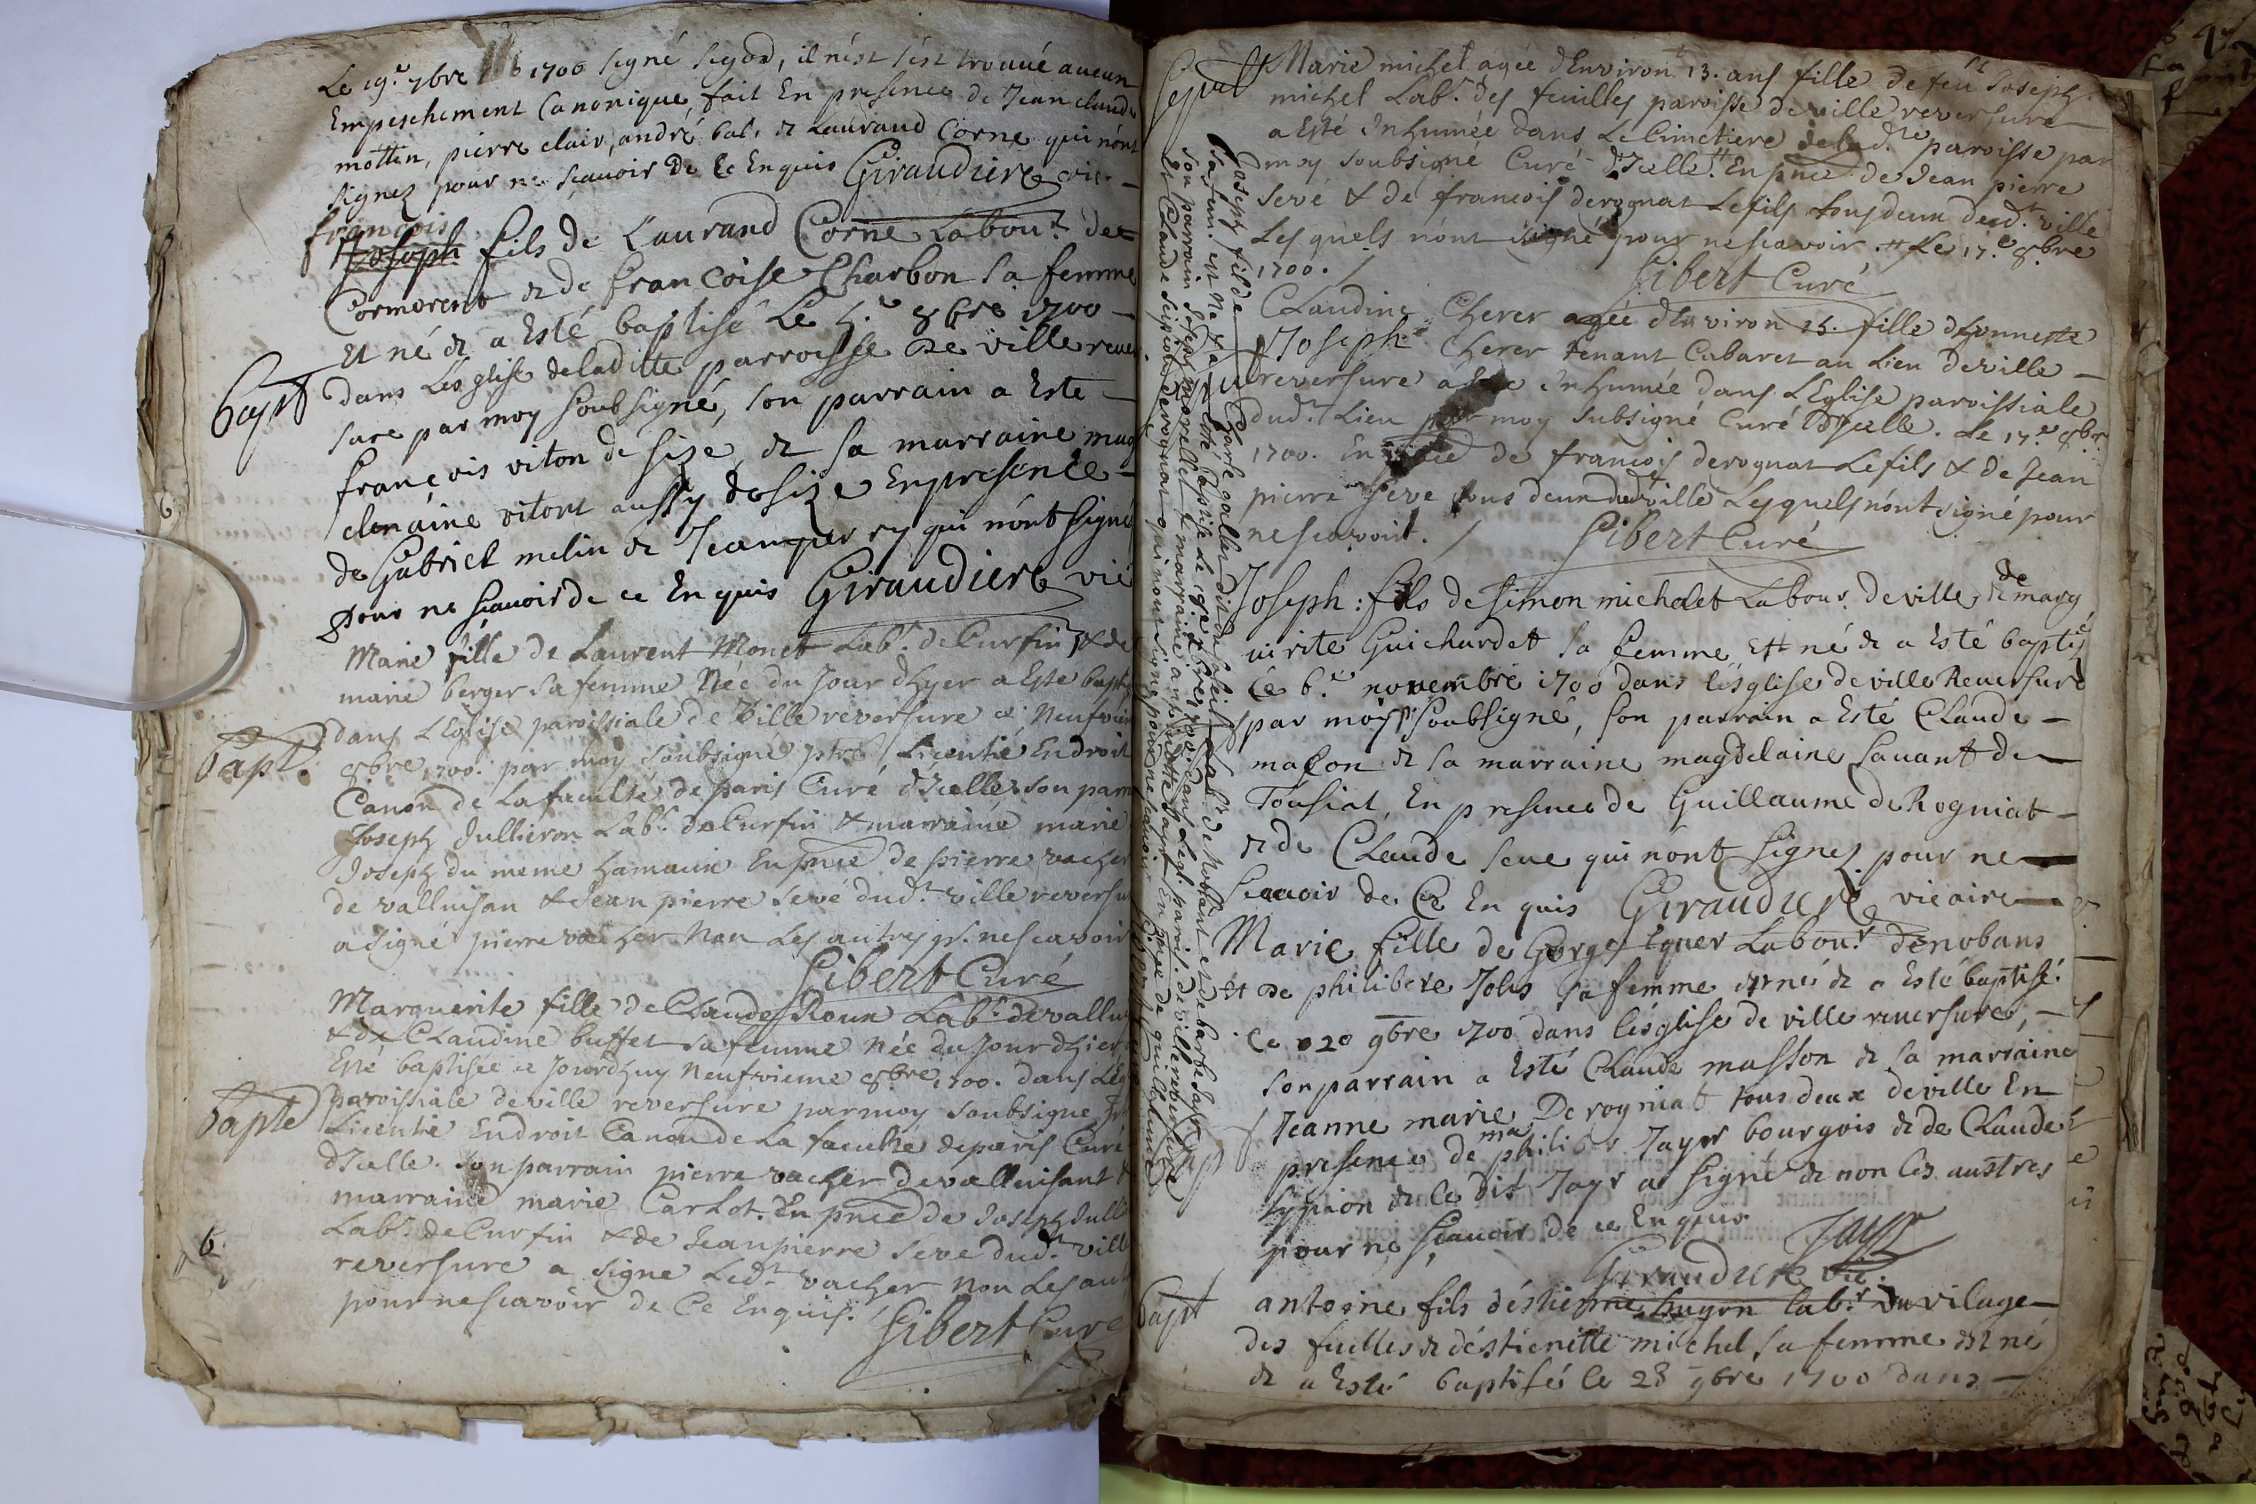 Le 19.e 7bre 1700 signé sigod, il n'est s'est trouué aucun
Empeschement Canonique, fait En presence de Jean claude
mottin, pierre clair, andré bal, & Laurand Corne qui n'ont
signez pour ne sçauoir De Ce Enquis Giraudiere vic.
françois
Joseph fils de Laurand Corne Labou.r de
Cormorent & de françoise Charbon sa femme
Et né & a Esté baptisé Le 8bre 1700
Bapt
dans L'esglise de laditte parroisse De ville reuer
sure par moy soubsigné, son parrain a Este
françois viton de size, & sa marraine mag
delenaine vitont aussy de size En presence
de Gabriel melin & Jean perrey qui n'ont signé
pour ne sçauoir de ce Enquis Giraudiere vic
Marie fille de Laurent Monet Lab.r de Curfin & de
marie berger sa femme Née du Jour d'hyer a Esté bapt
dans L'Eglise paroissiale de Ville reversure ce Neufvie
Bapt.
8bre 1700. par moy soubsigné ptre Licentié En droit
Canon de La faculté de paris Curé d'Icelle son parr
Joseph Jullieron Lab.r de Curfin & marraine marie
Joseph du meme hamaux En pnce de pierre vacher
de valluisan & Jean pierre sevé dud.t ville reversu
a signé pierre vacher Non Les autres p.r ne scavoir
Gibert Curé
Marguerite fille de Claude Roux Lab.r de vallu
& de Claudine buffet sa femme Née du Jour d'hier
Esté baptisée ce Jourd'huy Neufvieme 8bre 1700. dans L'Eg
Bapte
paroissiale de ville reversure par moy soubsigné
Licentié En droit Canon de La faculté de paris Curé
d'Icelle. son parrain pierre vacher de valluisant &
marraine marie Carlot. En pnce de Joseph Jull
Lab.r de Curfin & de Jean pierre seve dud.t ville
6
reversure a signé Led.t vacher non Les au
pour ne scavoir de Ce Enquis. Gibert Curé
Sepult
Marie michel agée d'Environ 13. ans fille de feu Joseph
michel Lab.r des feuilles paroisse de ville reversure
a Esté Inhumée dans Le Cimetiere de lad.te paroisse par
moy soubsigné Curé d'Icelle. En pnce de Jean pierre
Sevé & de francois derognat Le fils tous deux dud.t ville
Lesquels n'ont signé pour ne scavoir. Le 17.e 8bre
1700.
Gibert Curé
Claudine Cherer agée d'Environ 15. fille d'honneste
Joseph Cherer tenant Cabaret au Lieu de ville
reversure a Esté Inhumée dans L'Eglise paroissiale
dud.t Lieu par moy subsigné Curé d'Icelle. Le 17.e 8bre
1700. En pnce de francois derognat Le fils & de Jean
pierre Seve tous deux dud.t ville Lesquels n'ont signé pour
ne scavoir.
Gibert Curé
Joseph fils de
Charle gallet dit Labr. de et de barbe
sa fem. est Né & a Esté baptisé Le
son parrain Joseph morellet & marraine En pnce de guillaume
& Claude Scipion derognat qui n'ont signé pour ne scavoir
Joseph : fils de Simon michalet Labour. de ville & de marg
uirite Guichardet sa femme Est né & a Esté bapti
Ce 6.e novembre 1700 dans l'esglise de ville Reuersure
par moy soubsigné, son parrain a Esté Claude
maçon & sa marraine magdelaine sauant de
Tousiat, En presence de Guillaume de Rogniat
& de Claude seue qui n'ont signez pour ne
sçauoir de Ce En quis Giraudiere vicaire
Marie fille de George Labou.r de nobans
Et De philiberte Jolis sa femme Et né & a Esté baptisé
Ce 020 9bre 1700 dans l'esglise de ville reuersure,
son parrain a Esté Claude masson & sa marraine
Bapt
Jeanne marie De rogniat tous deux de ville En
presence de m.e philibert Jayr bourgois & de Claude
sypion & le dit Jayr a signé & non les austres
pour ne sçauoir de ce En quis
Jayr
Giraudiere vic.
Bapt
antoine fils d'estienne huyon lab.r du vilage
des fuilles & d'estienette michel sa femme Est né
& a Esté baptisé le 28 9bre 1700 dans